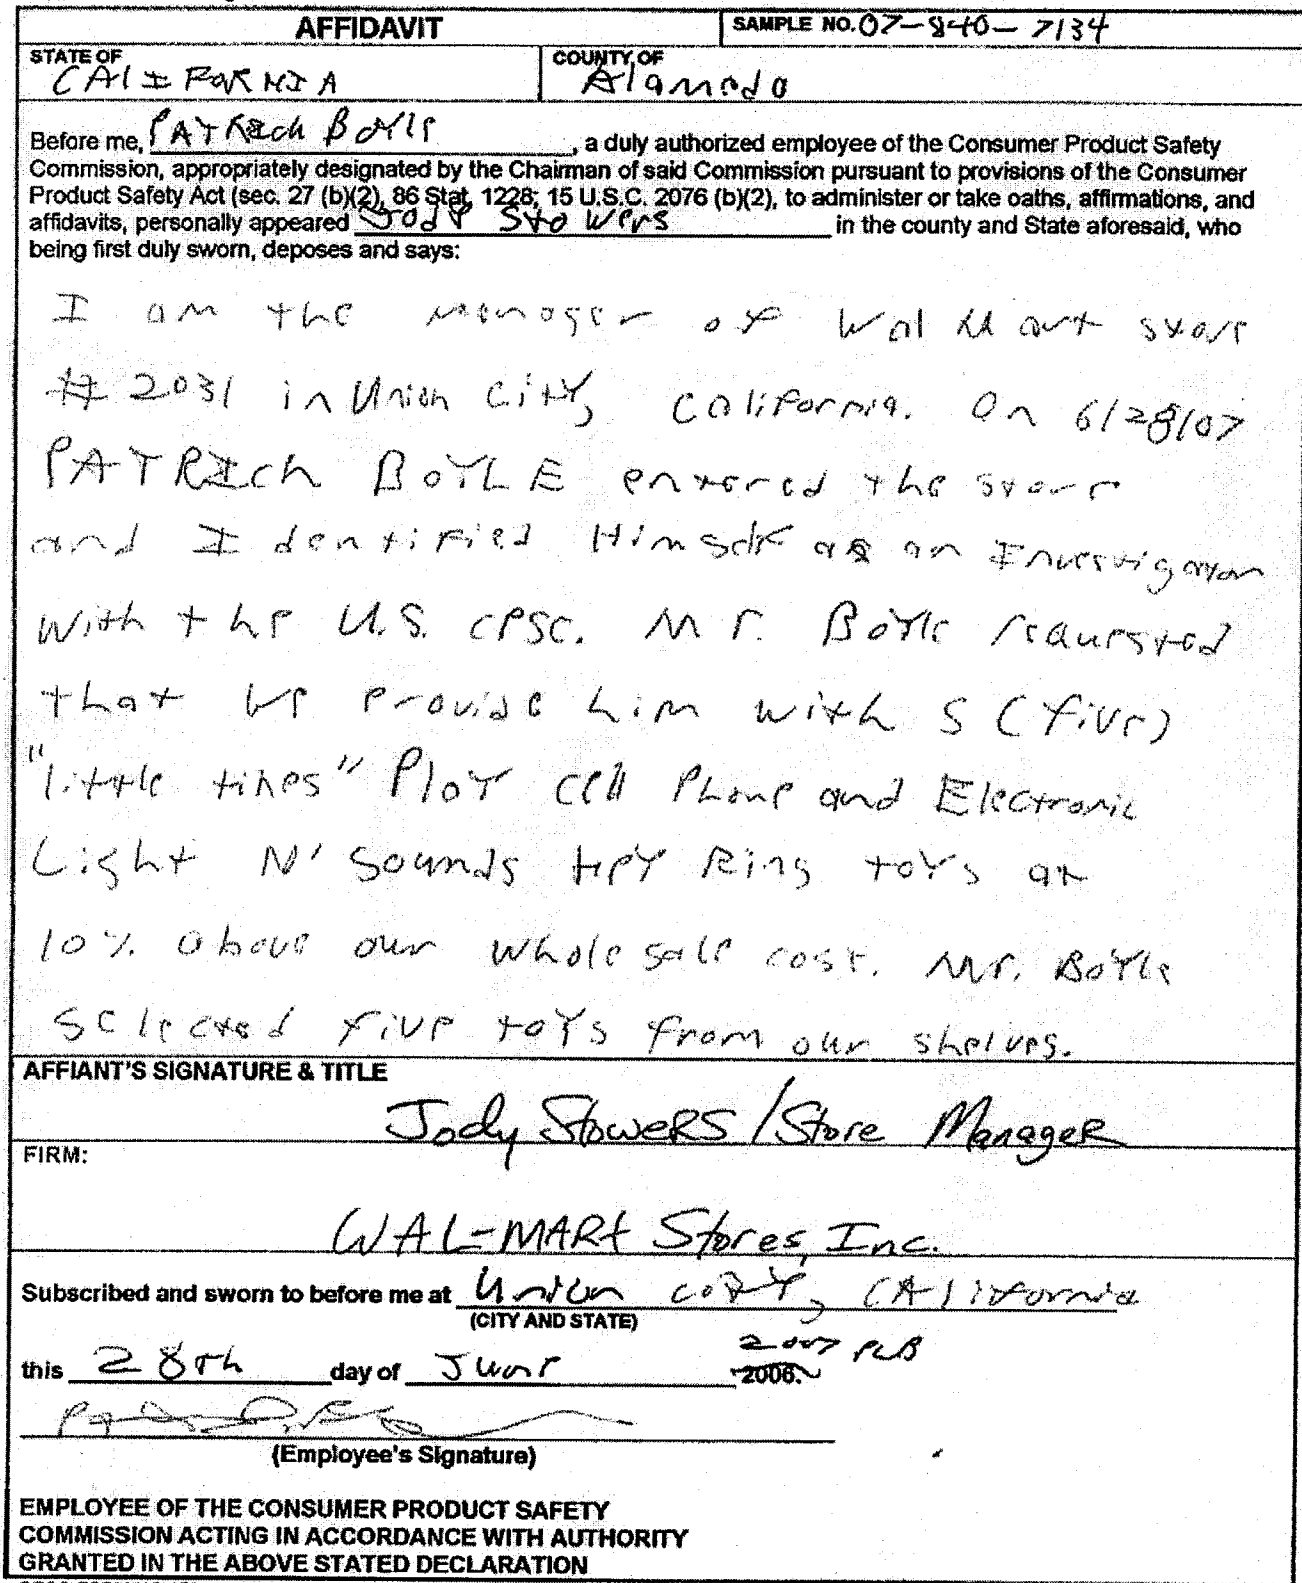 AFFIDAVIT
SAMPLE NO. 07-840-7134
STATE OF
CALIFORNIA
COUNTY OF
Alameda
Before me, PATRICK BOYLE, a duly authorized employee of the Consumer Product Safety
Commission, appropriately designated by the Chairman of said Commission pursuant to provisions of the Consumer
Product Safety Act (sec. 27 (b)(2), 86 Stat. 1228; 15 U.S.C. 2076 (b)(2), to administer or take oaths, affirmations, and
affidavits, personally appeared Jody Stowers in the county and State aforesaid, who
being first duly sworn, deposes and says:
I am the manager of Wal Mart store
# 2031 in Union City, California. On 6/28/07
PATRICK BOYLE entered the store
and Identified Himself as an Investigator
with the U.S. CPSC. Mr. Boyle requested
that we provide him with 5 (five)
"little tikes" Play Cell Phone and Electronic
Light N' Sounds Key Ring toys at
10% above our wholesale cost. Mr. Boyle
selected five toys from our shelves.
AFFIANT'S SIGNATURE & TITLE
Jody Stowers / Store Manager
FIRM:
WAL-MART Stores, Inc.
Subscribed and sworn to before me at Union City, California
(CITY AND STATE)
2007 PLB
this 28th day of June 2006.
(Employee's Signature)
EMPLOYEE OF THE CONSUMER PRODUCT SAFETY
COMMISSION ACTING IN ACCORDANCE WITH AUTHORITY
GRANTED IN THE ABOVE STATED DECLARATION